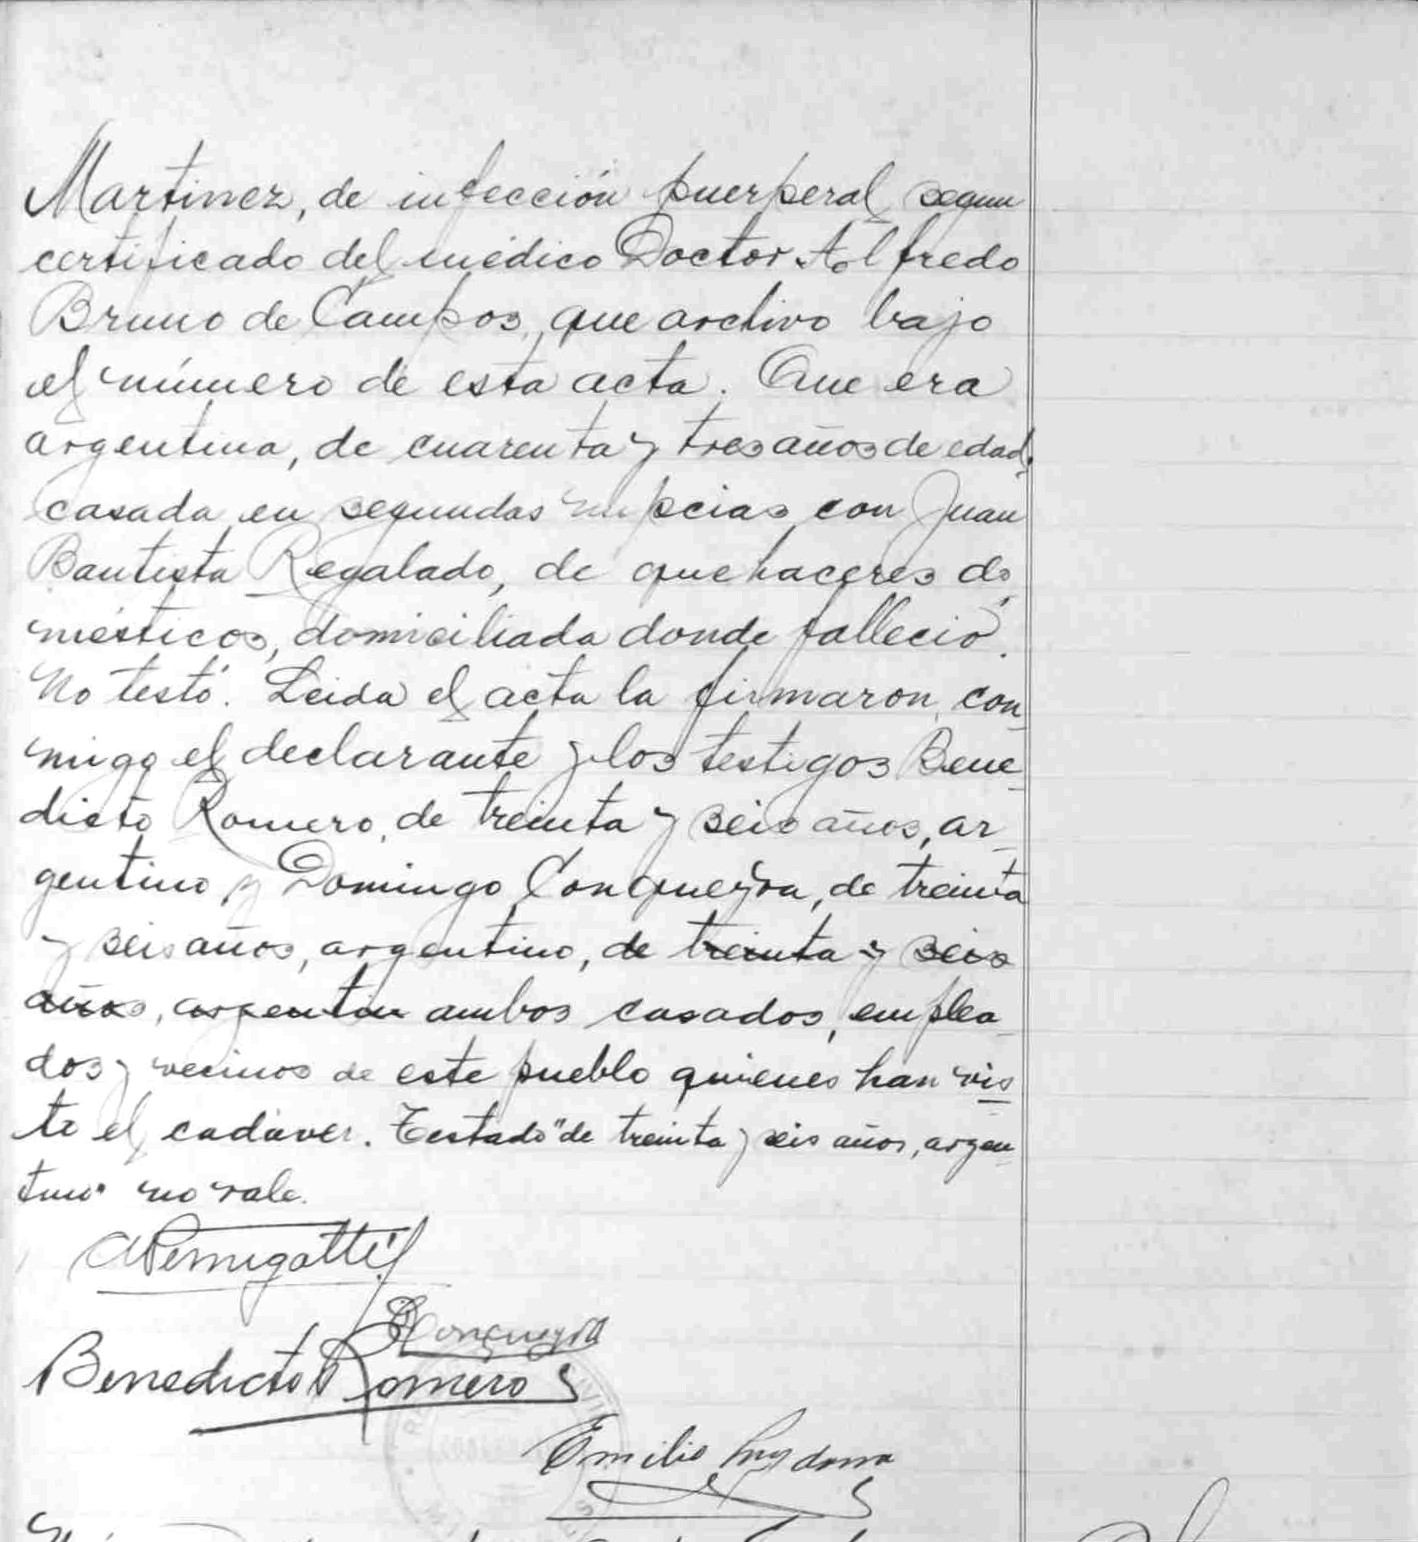 Martinez, de infección puerperal, segun
certificado del médico Doctor Alfredo
Bruno de Campos, que archivo bajo
el número de esta acta. Que era
argentina, de cuarenta y tres años de edad,
casada en segundas nupcias con Juan
Bautista Regalado, de quehaceres do-
mésticos, domiciliada donde falleció.
No testó. Leida el acta la firmaron con-
migo el declarante y los testigos Bene-
dicto Romero, de treinta y seis años, ar-
gentino y Domingo Conqueyra, de treinta
y seis años, argentino, de treinta y seis
años, argentin ambos casados, emplea-
dos y vecinos de este pueblo quienes han vis-
to el cadáver. Testado "de treinta y seis años, argen-
tino" no vale.
Benedicto Romero
Emilio